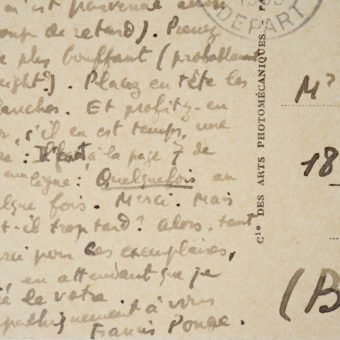 m'est parvenue
coup de retard). Prenez
plus bouffant (probablement
). Placez en tête les
blanches. Et profitez-en
, s'il en est temps, une
: Il faut à la page 7 de
ligne : Quelquefois au
quelque fois. Merci. Mais
est-il trop tard? Alors, tant
merci pour ces exemplaires,
en attendant que je
de le votre
sympathiquement à vous
Francis Ponge.
DEPART
Cie DES ARTS PHOTOMÉCANIQUES
Mr
18
(B